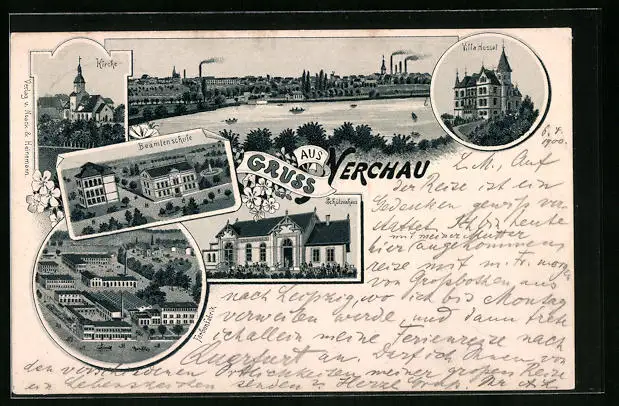 Kirche
Villa Hessel
Verlag v. Naack & Heinemann
Beamtenschule
GRUSS AUS NERCHAU
Schützenhaus
Farbenfabrik
6. 4. 1900.
L. M., Auf
der Reise ist ein
Gedenken gewiß ver-
stattet. Ich bin heute
mit meiner Mutter
hier angekommen,
reise mit m. Fr. morgen
von Grossbothen aus
nach Leipzig, wo ich bis Montag
verweilen werde und dann trete
ich allein meine Ferienreise nach
an. Darf ich Ihnen von
den verschiedenen Örtlichkeiten meiner großen Reise
ein Lebenszeichen senden? Herzl. Gruß